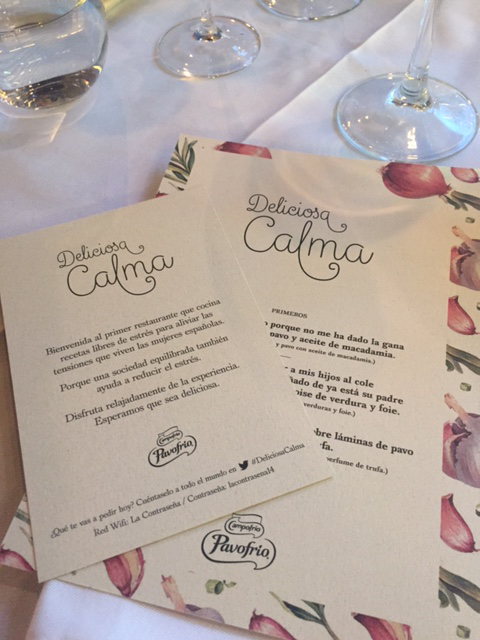 Deliciosa
Calma
Bienvenida al primer restaurante que cocina
recetas libres de estrés para aliviar las
tensiones que viven las mujeres españolas.
Porque una sociedad equilibrada también
ayuda a reducir el estrés.
Disfruta relajadamente de la experiencia.
Esperamos que sea deliciosa.
Campofrío
Pavofrío
¿Qué te vas a pedir hoy? Cuéntaselo a todo el mundo en #DeliciosaCalma
Red Wifi: La Contraseña / Contraseña: lacontrasena14
Deliciosa
Calma
PRIMEROS
porque no me ha dado la gana
pavo y aceite de macadamia.
y pavo con aceite de macadamia.)
a mis hijos al cole
ñado de ya está su padre
oise de verdura y foie.
verduras y foie.)
obre láminas de pavo
rfa.
perfume de trufa.)
Campofrío
Pavofrío